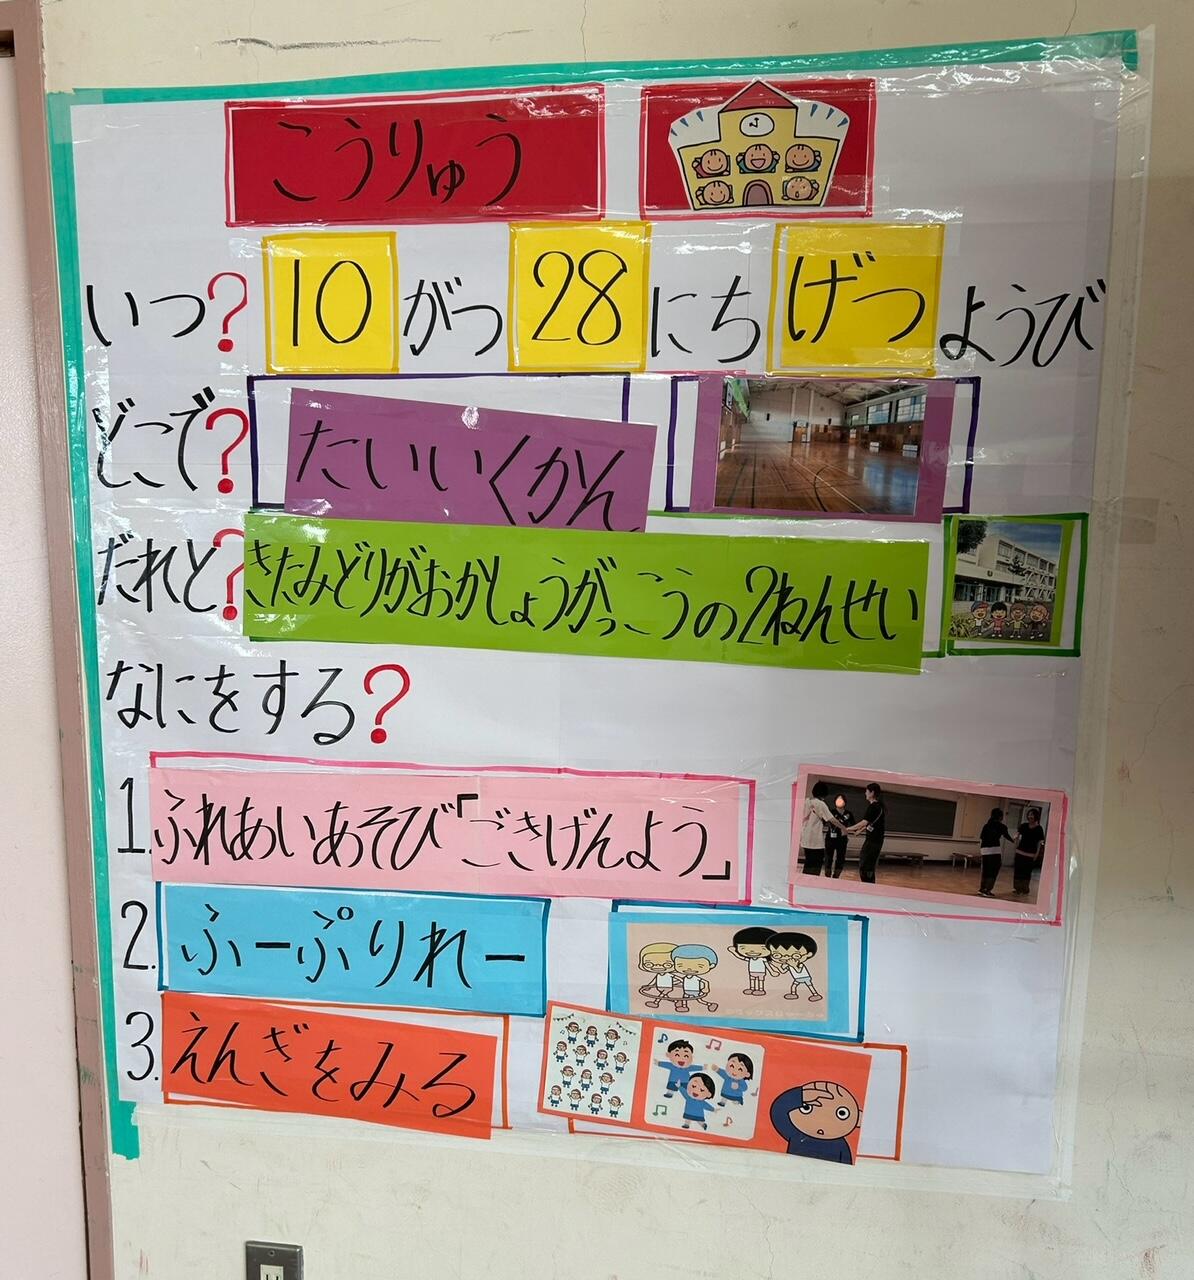 こうりゅう
いつ? 10がつ28にちげつようび
どこで? たいいくかん
だれと? きたみどりがおかしょうがっこうの2ねんせい
なにをする?
1. ふれあいあそび「ごきげんよう」
2. ふーぷりれー
3. えんぎをみる